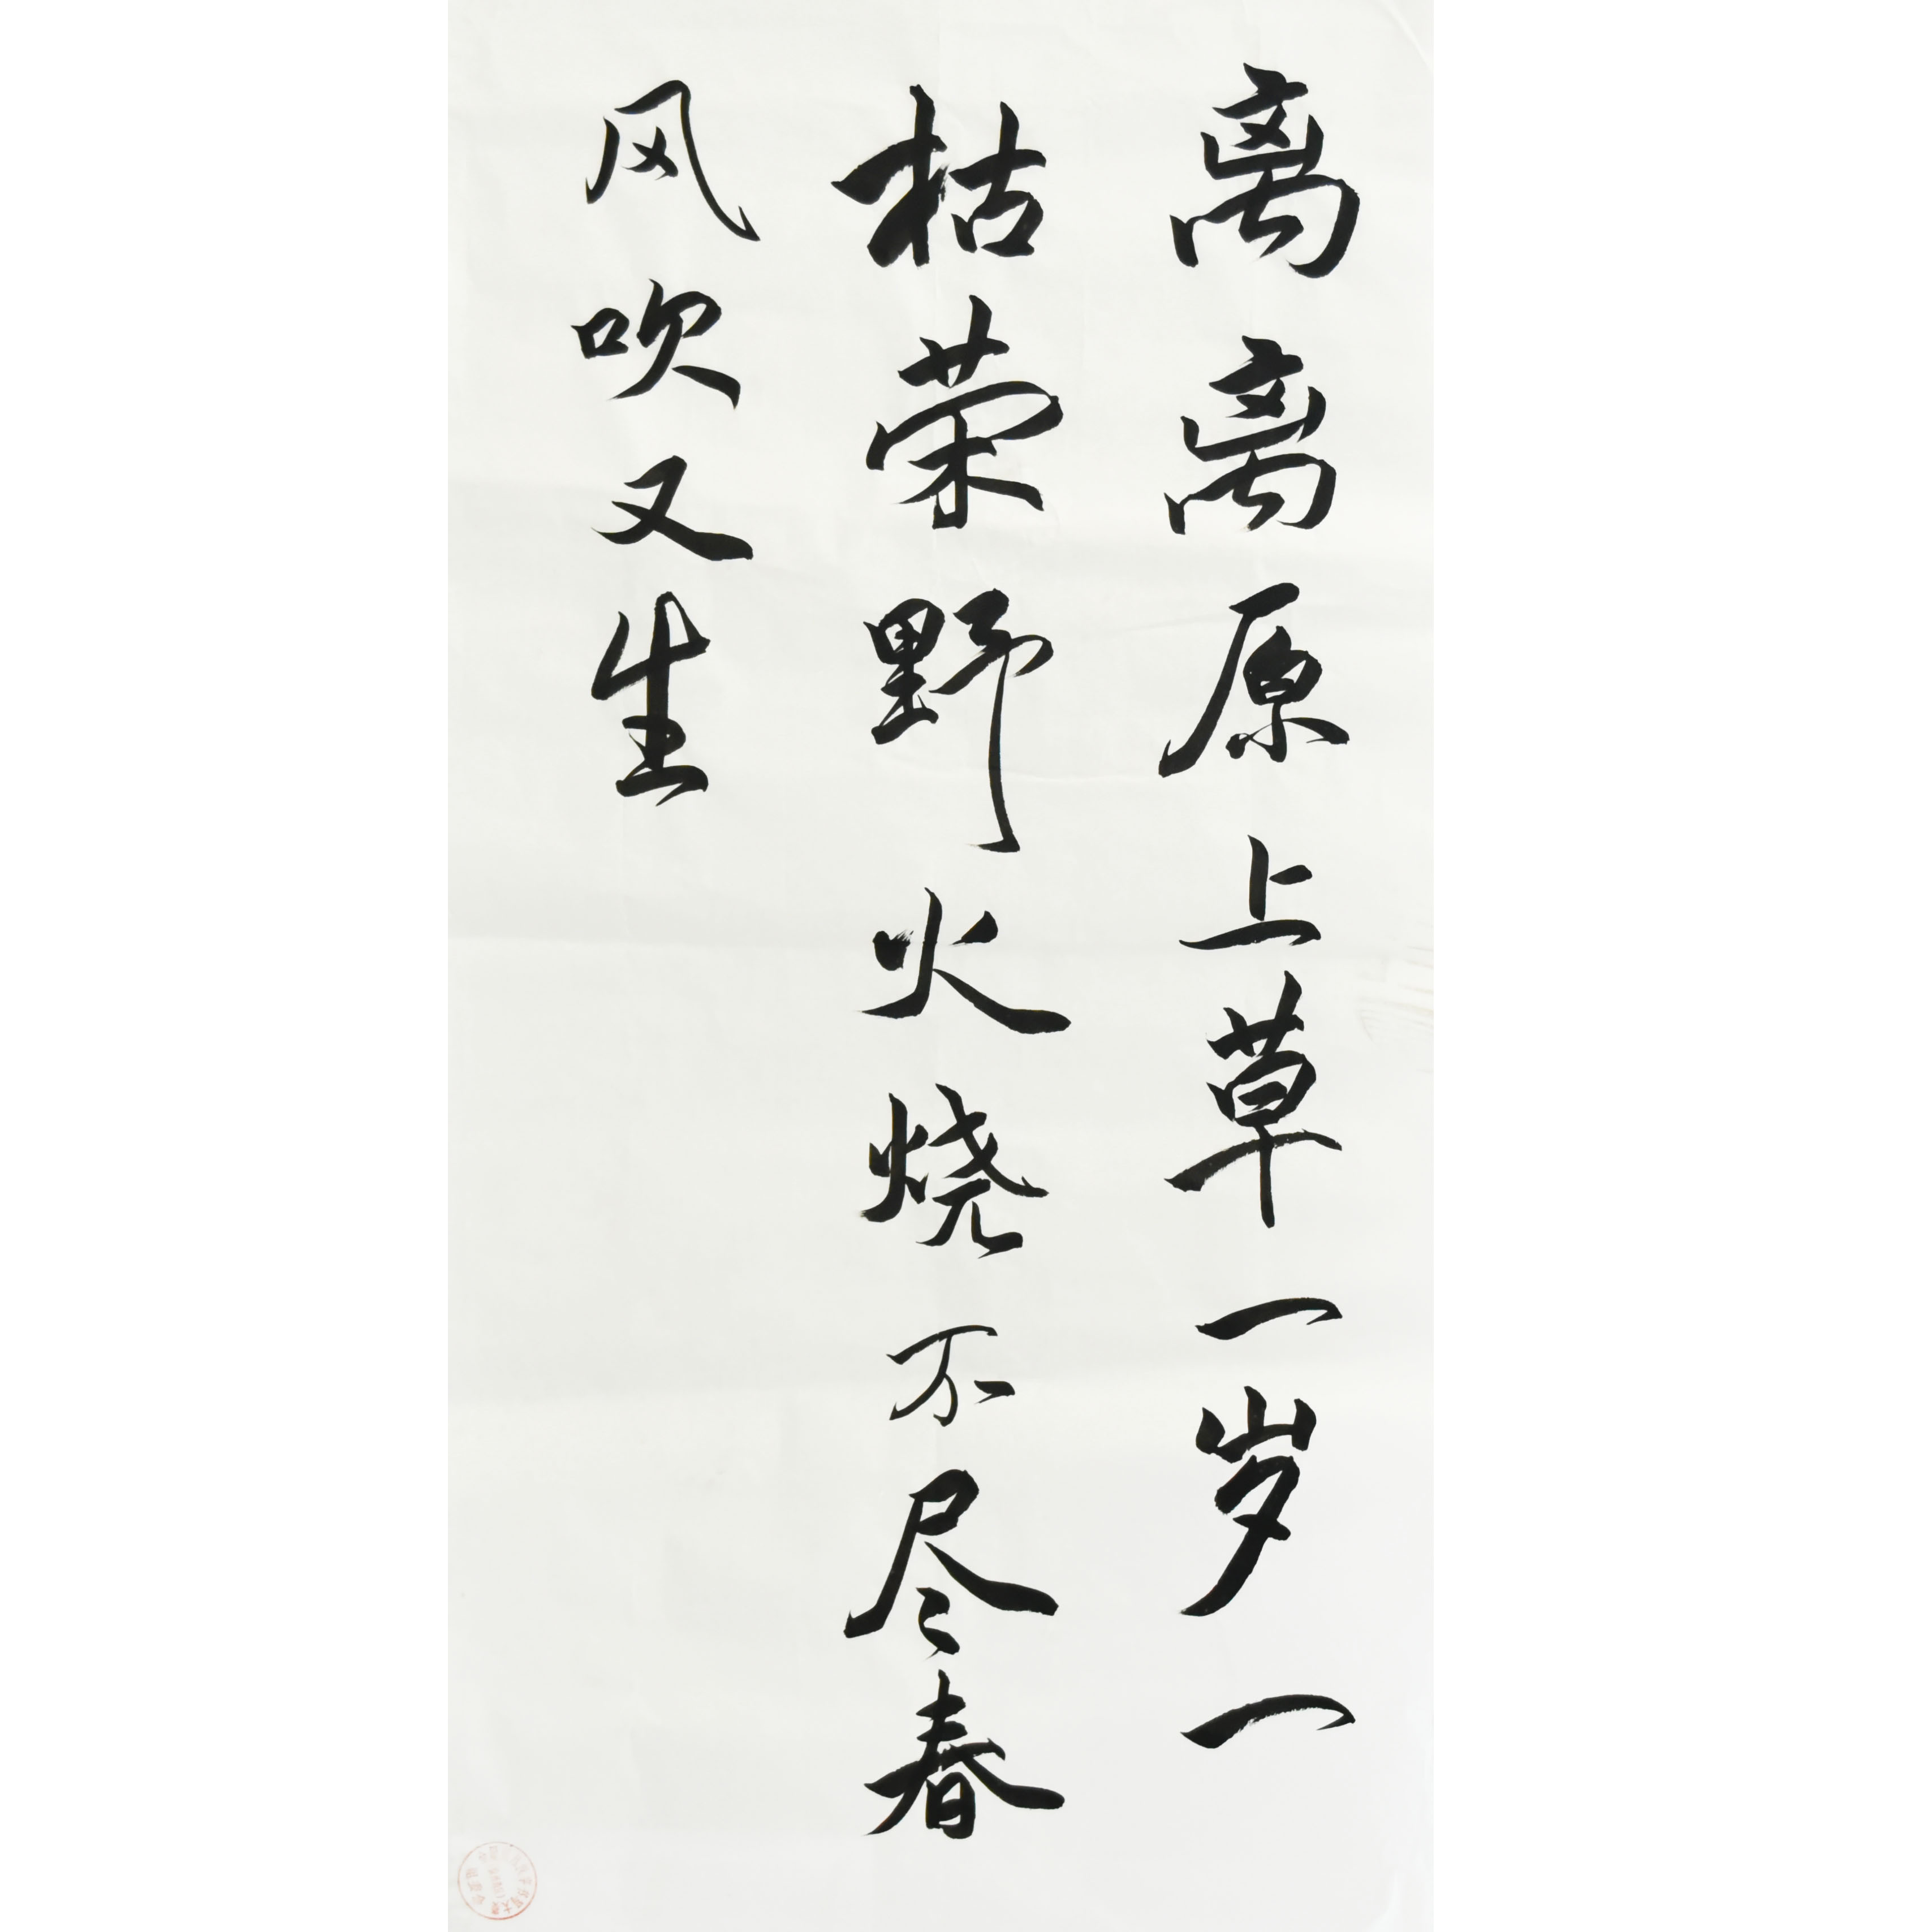 离离原上草一岁一
枯荣野火烧不尽春
风吹又生